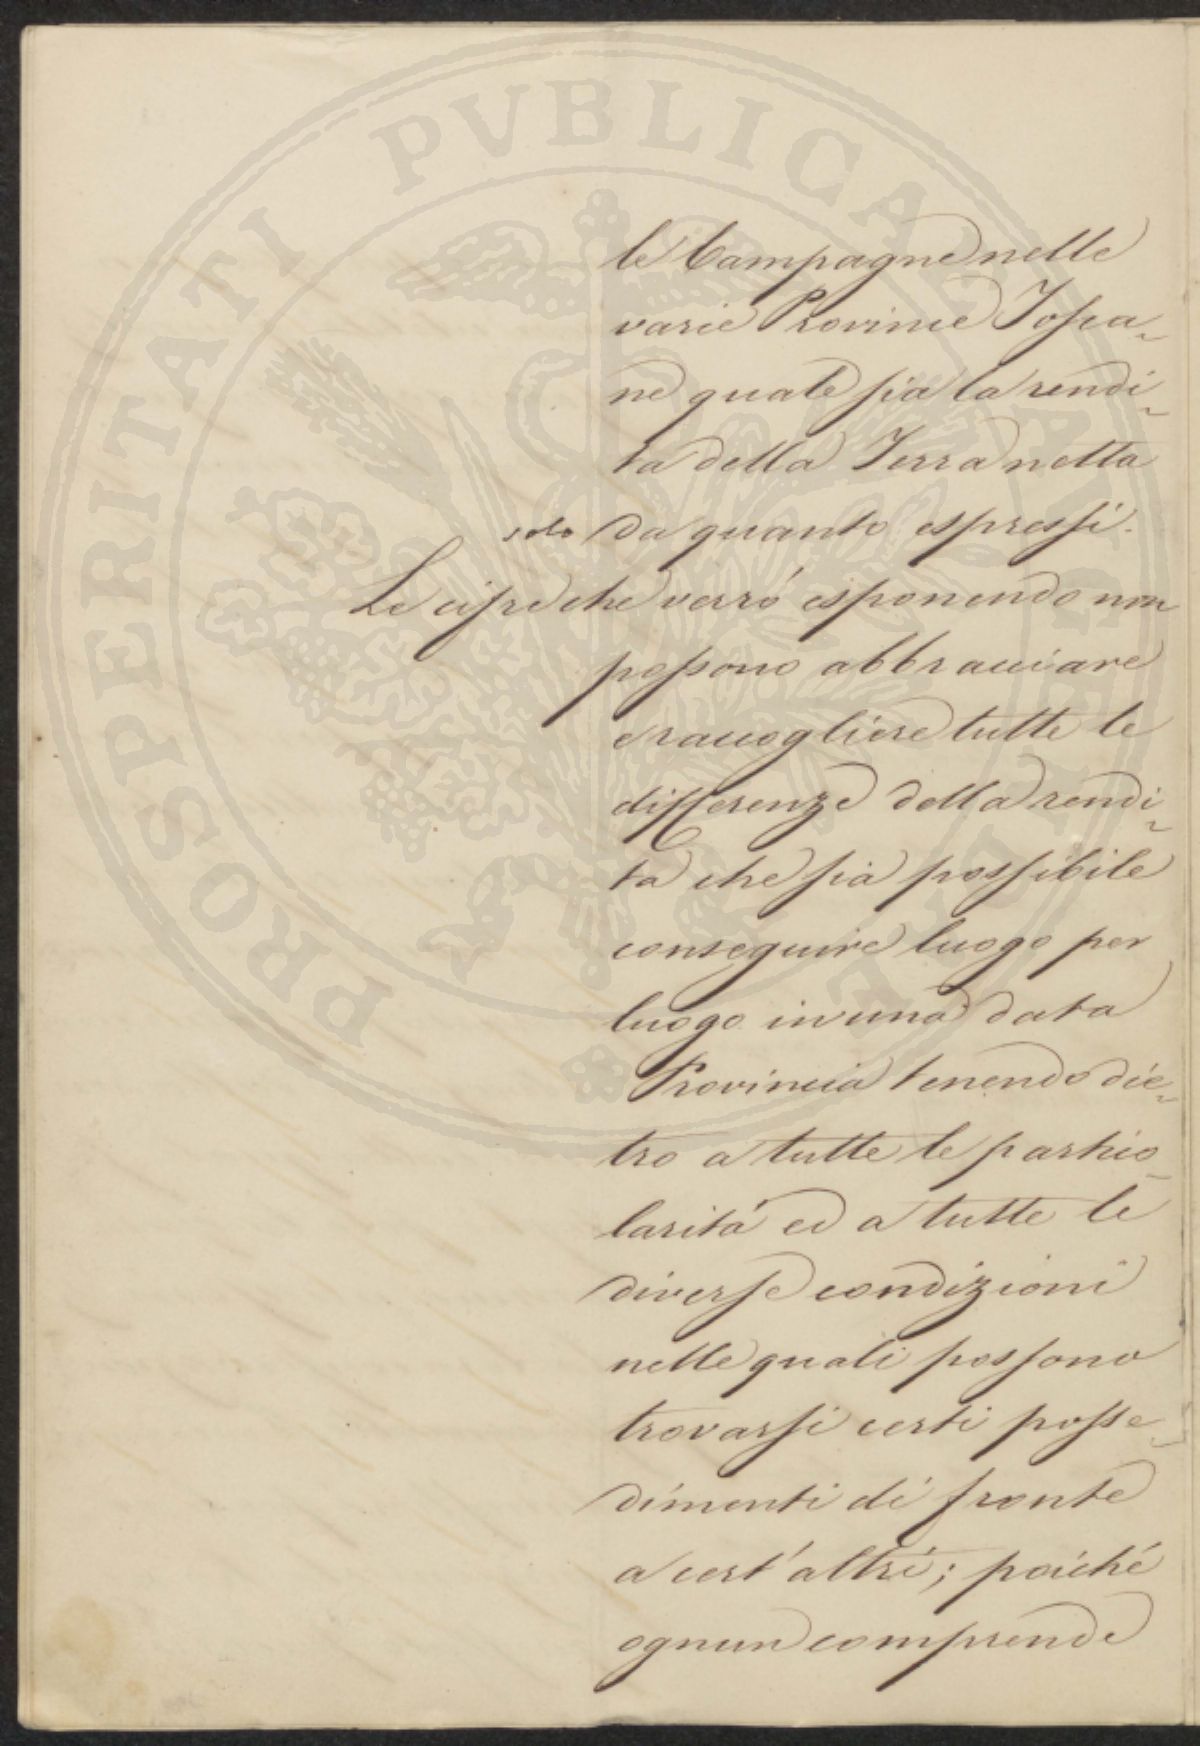 PROSPERITATI PVBLICAE AVGENDAE
le Campagne nelle
varie Provincie Tosca-
ne quale sia la rendi-
ta della Terra netta
solo da quanto espressi.
Le cifre che verró esponendo non
possono abbracciare
e raccogliere tutte le
differenze della rendi-
ta che sia possibile
conseguire luogo per
luogo in una data
Provincia tenendo die-
tro a tutte le partico-
laritá ed a tutte le
diverse condizioni
nelle quali possono
trovarsi certi posse-
dimenti di fronte
a cert'altri; poiché
ognun comprende